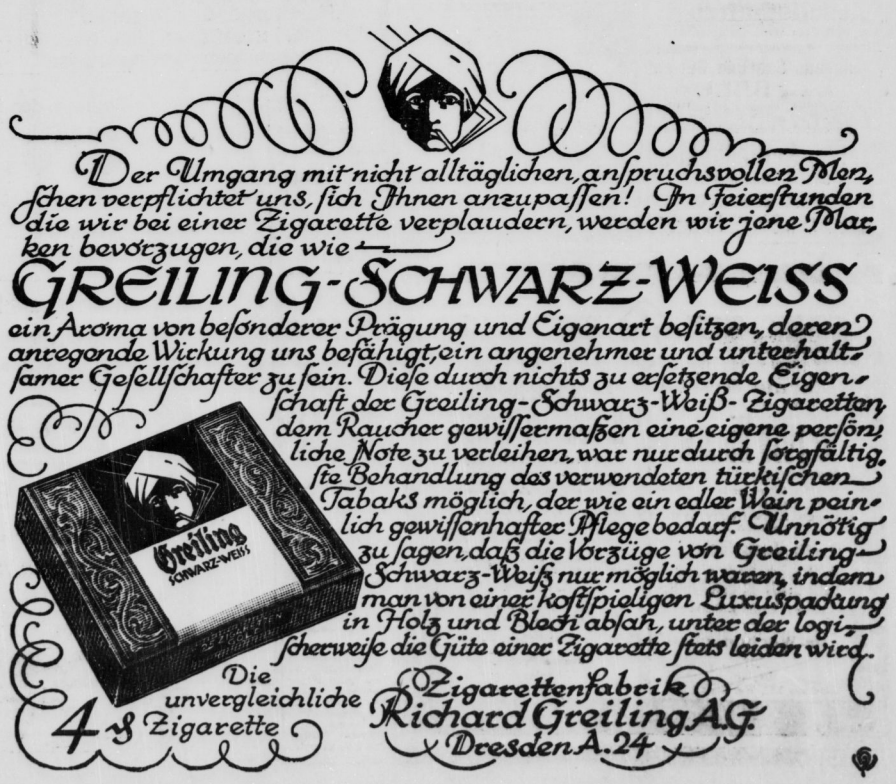 Der Umgang mit nicht alltäglichen, anſpruchsvollen Men-
ſchen verpflichtet uns, ſich Ihnen anzupaſſen! In Feierſtunden
die wir bei einer Zigarette verplaudern, werden wir jene Mar-
ken bevorzugen, die wie
GREILING-SCHWARZ-WEISS
ein Aroma von beſonderer Prägung und Eigenart beſitzen, deren
anregende Wirkung uns befähigt, ein angenehmer und unterhalt-
ſamer Geſellſchafter zu ſein. Dieſe durch nichts zu erſetzende Eigen-
ſchaft der Greiling-Schwarz-Weiß-Zigaretten,
dem Raucher gewiſſermaßen eine eigene perſön-
liche Note zu verleihen, war nur durch ſorgfältig-
ſte Behandlung des verwendeten türkiſchen
Tabaks möglich, der wie ein edler Wein pein-
lich gewiſſenhafter Pflege bedarf. Unnötig
zu ſagen, daß die Vorzüge von Greiling-
Schwarz-Weiß nur möglich waren, indem
man von einer koſtſpieligen Luxuspackung
in Holz und Blech abſah, unter der logi-
ſcherweiſe die Güte einer Zigarette ſtets leiden wird.
Greiling
SCHWARZ-WEISS
Die
unvergleichliche
4 ₰ Zigarette
Zigarettenfabrik
Richard Greiling A.G.
Dresden A.24